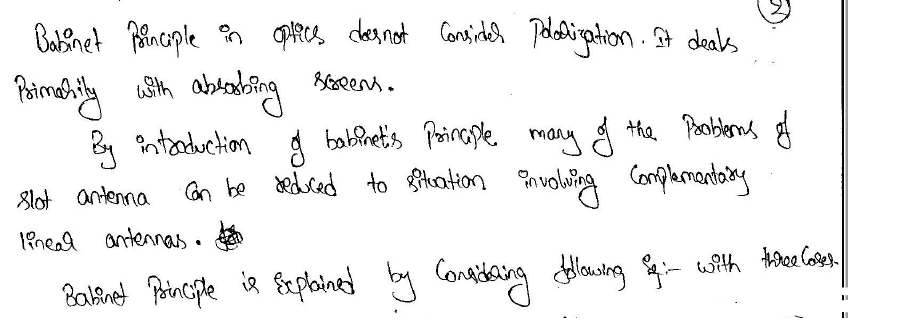 2
Babinet Principle in optics does not Consider Polarization. It deals
Primarily with absorbing screens.
By introduction of babinet's Principle many of the Problems of
slot antenna can be reduced to situation involving Complementary
linear antennas.
Babinet Principle is Explained by Considering following fig:- with three Cases.